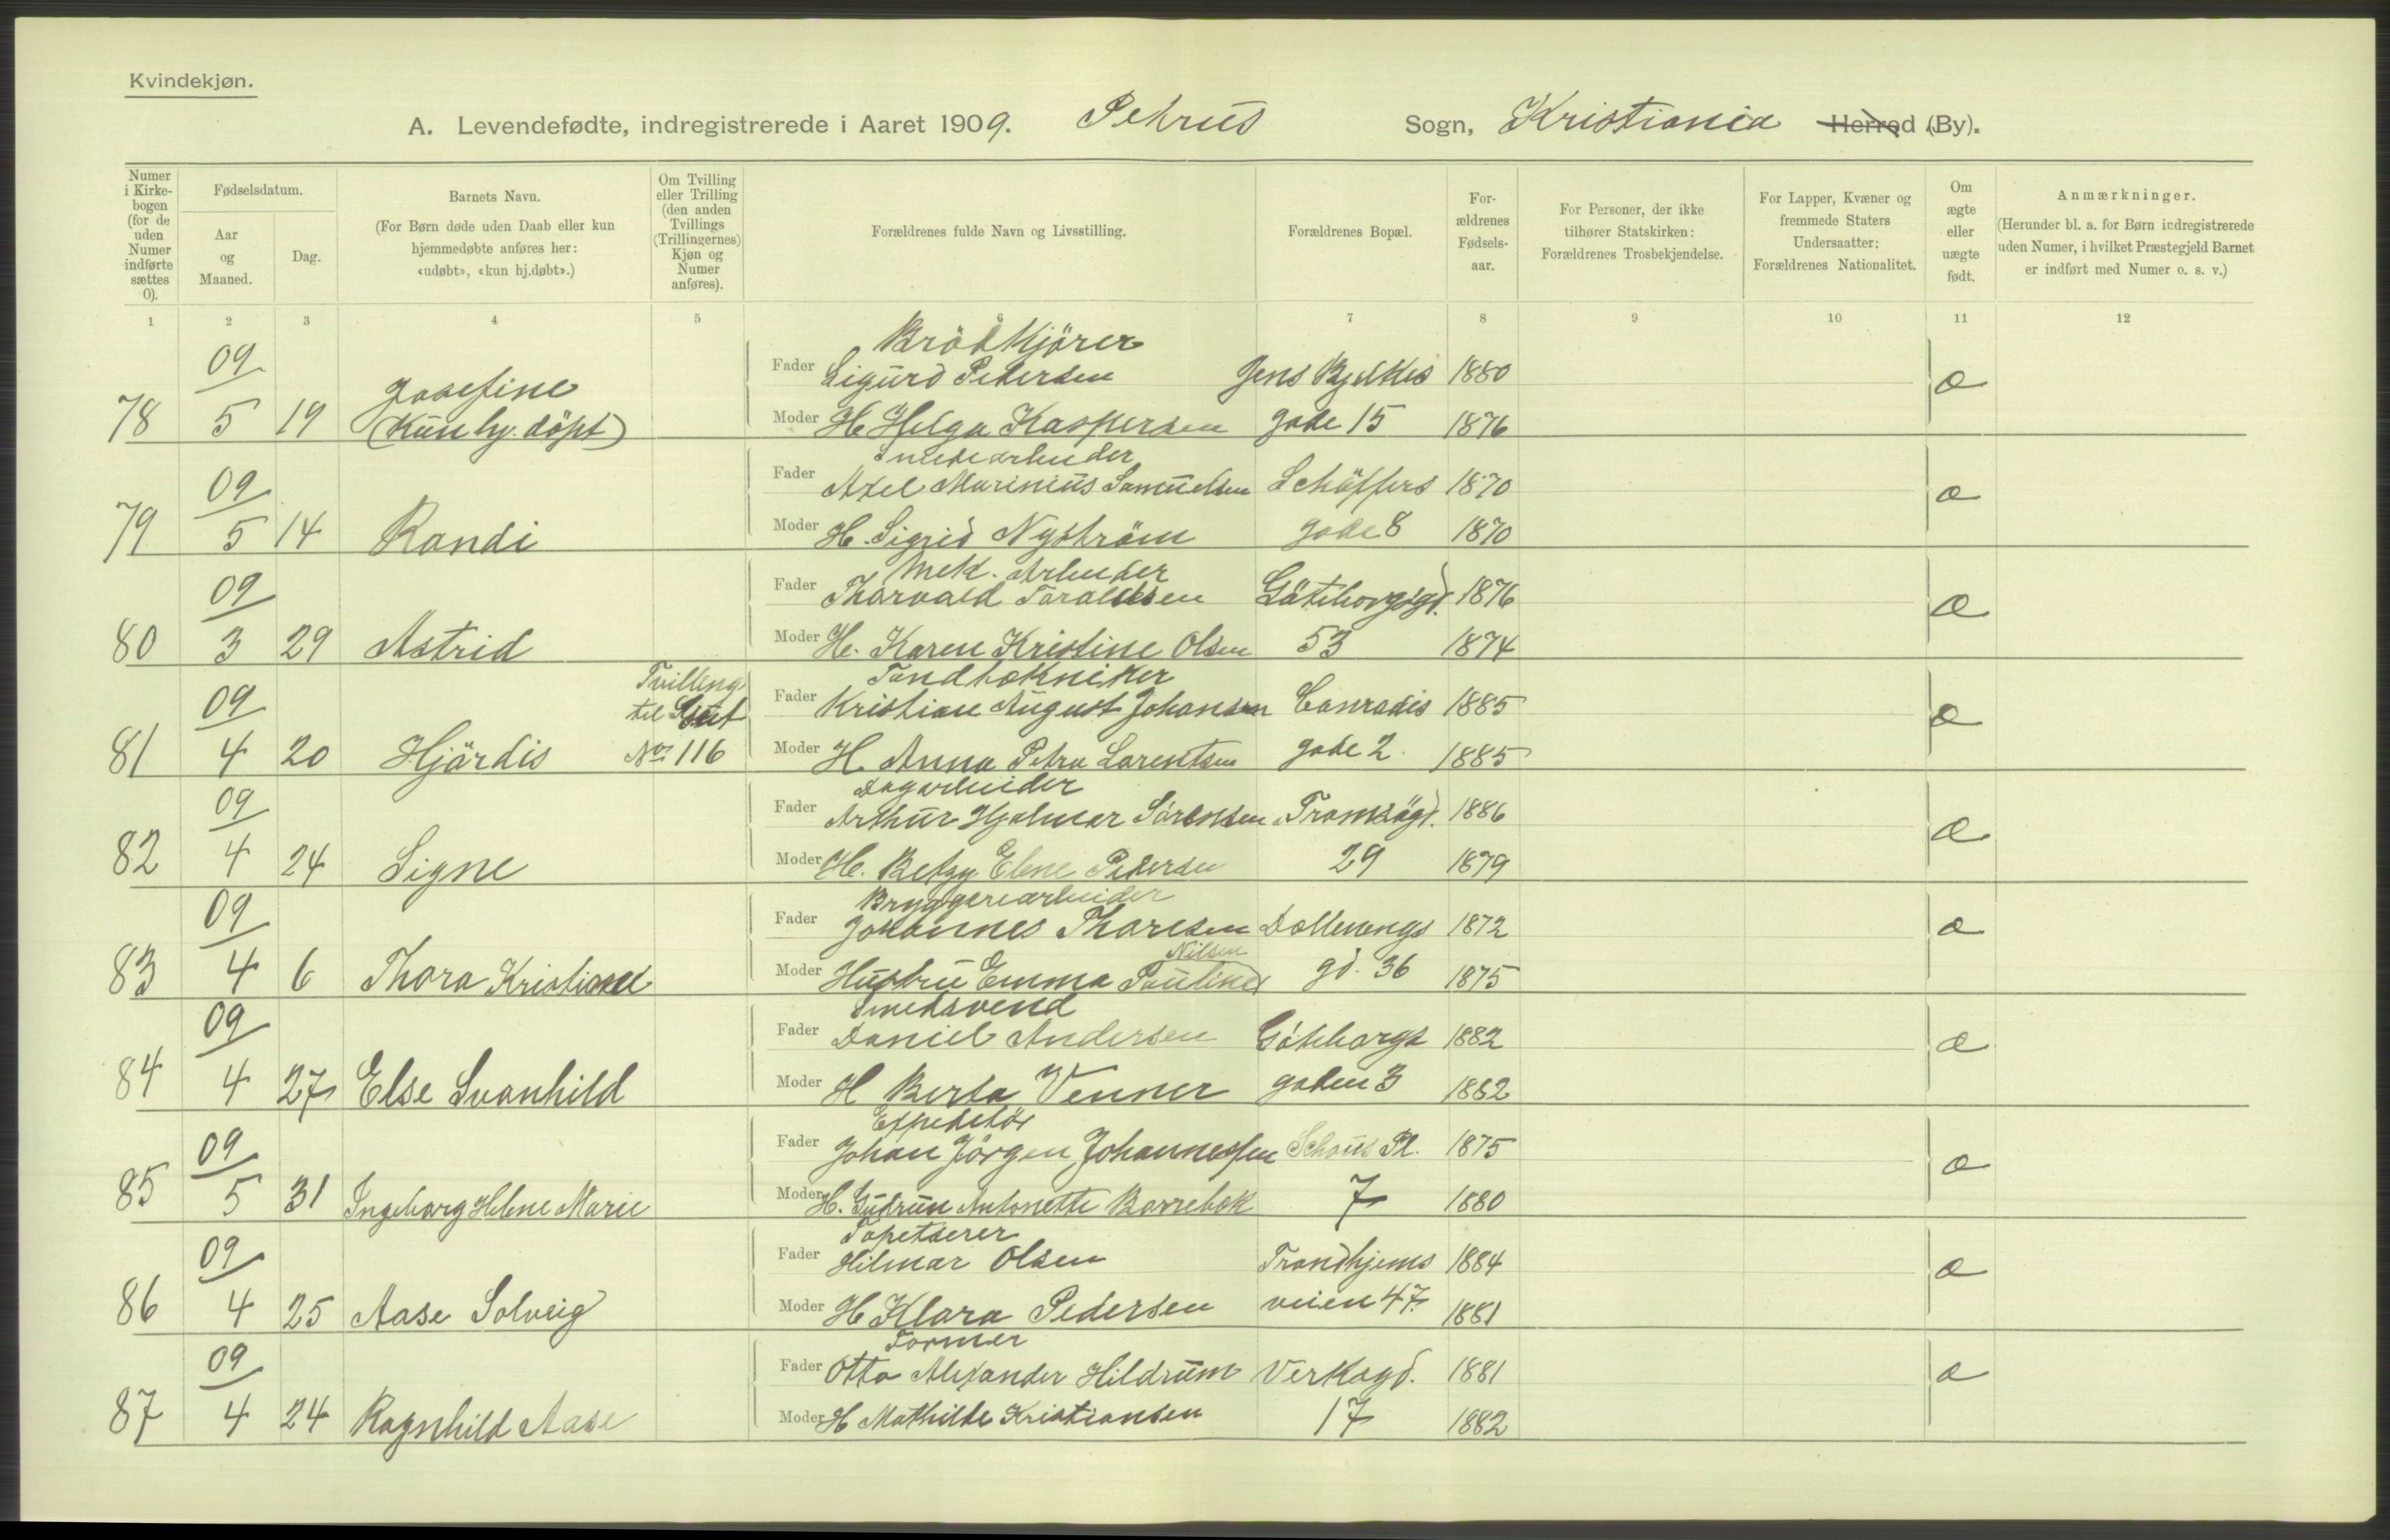 Kvindekjøn.
A. Levendefødte, indregistrerede i Aaret 1909. Petrus Sogn, Kristiania Herred (By).
Numer i Kirkebogen (for de uden Numer indførte sættes 0).
Fødselsdatum.
Aar og Maaned.
Dag.
Barnets Navn.
(For Børn døde uden Daab eller kun hjemmedøbte anføres her: «udøbt», «kun hj.døbt».)
Om Tvilling eller Trilling (den anden Tvillings (Trillingernes) Kjøn og Numer anføres).
Forældrenes fulde Navn og Livsstilling.
Forældrenes Bopæl.
Forældrenes Fødselsaar.
For Personer, der ikke tilhører Statskirken: Forældrenes Trosbekjendelse.
For Lapper, Kvæner og fremmede Staters Undersaatter: Forældrenes Nationalitet.
Om ægte eller uægte født.
Anmærkninger.
(Herunder bl. a. for Børn indregistrerede uden Numer, i hvilket Præstegjeld Barnet er indført med Numer o. s. v.)
1 2 3 4 5 6 7 8 9 10 11 12
Brödkjörer
09 Josefine Fader Sigurd Pedersen Jens Bjelkes 1880 æ
78 5 19 (Kun hj. döpt) Moder H Helga Kaspersen gade 15 1876
Smedearbeider
09 Fader Axel Marinius Samuelsen Schöffers 1870 æ
79 5 14 Randi Moder H. Sigrid Nyström gade 8 1870
Mek. Arbeider
09 Fader Thorvald Taraldsen Göteborggd. 1876 æ
80 3 29 Astrid Moder H. Karen Kristine Olsen 53 1874
Tvilling Tandtekniker
09 til Gut Fader Kristian August Johansen Conradis 1885 æ
81 4 20 Hjördis No 116 Moder H. Anna Petra Lorentsen gade 2. 1885
Dagarbeider
09 Fader Arthur Hjalmar Sörensen Tromsögd. 1886 æ
82 4 24 Signe Moder H. Betzy Elene Pedersen 29 1879
Bryggeriarbeider
09 Fader Johannes Thoresen Dællenengs 1872 æ
Nilsen
83 4 6 Thora Kristiane Moder Hustru Emma Pauline gd. 36 1875
Smedsvend
09 Fader Daniel Andersen Göteborgs 1882 æ
84 4 27 Else Svanhild Moder H Berta Venner gaden 3 1882
Expeditör
09 Fader Johan Jörgen Johannessen Schous Pl. 1875 æ
85 5 31 Ingeborg Helene Marie Moder H. Gudrun Antonette Borrebæk 7 1880
Tapetserer
09 Fader Hilmar Olsen Trondhjems 1884 æ
86 4 25 Aase Solveig Moder H Klara Pedersen veien 47 1881
Former
09 Fader Otto Alexander Hildrum Verksgd. 1881 æ
87 4 24 Ragnhild Aase Moder H Mathilde Kristiansen 17 1882